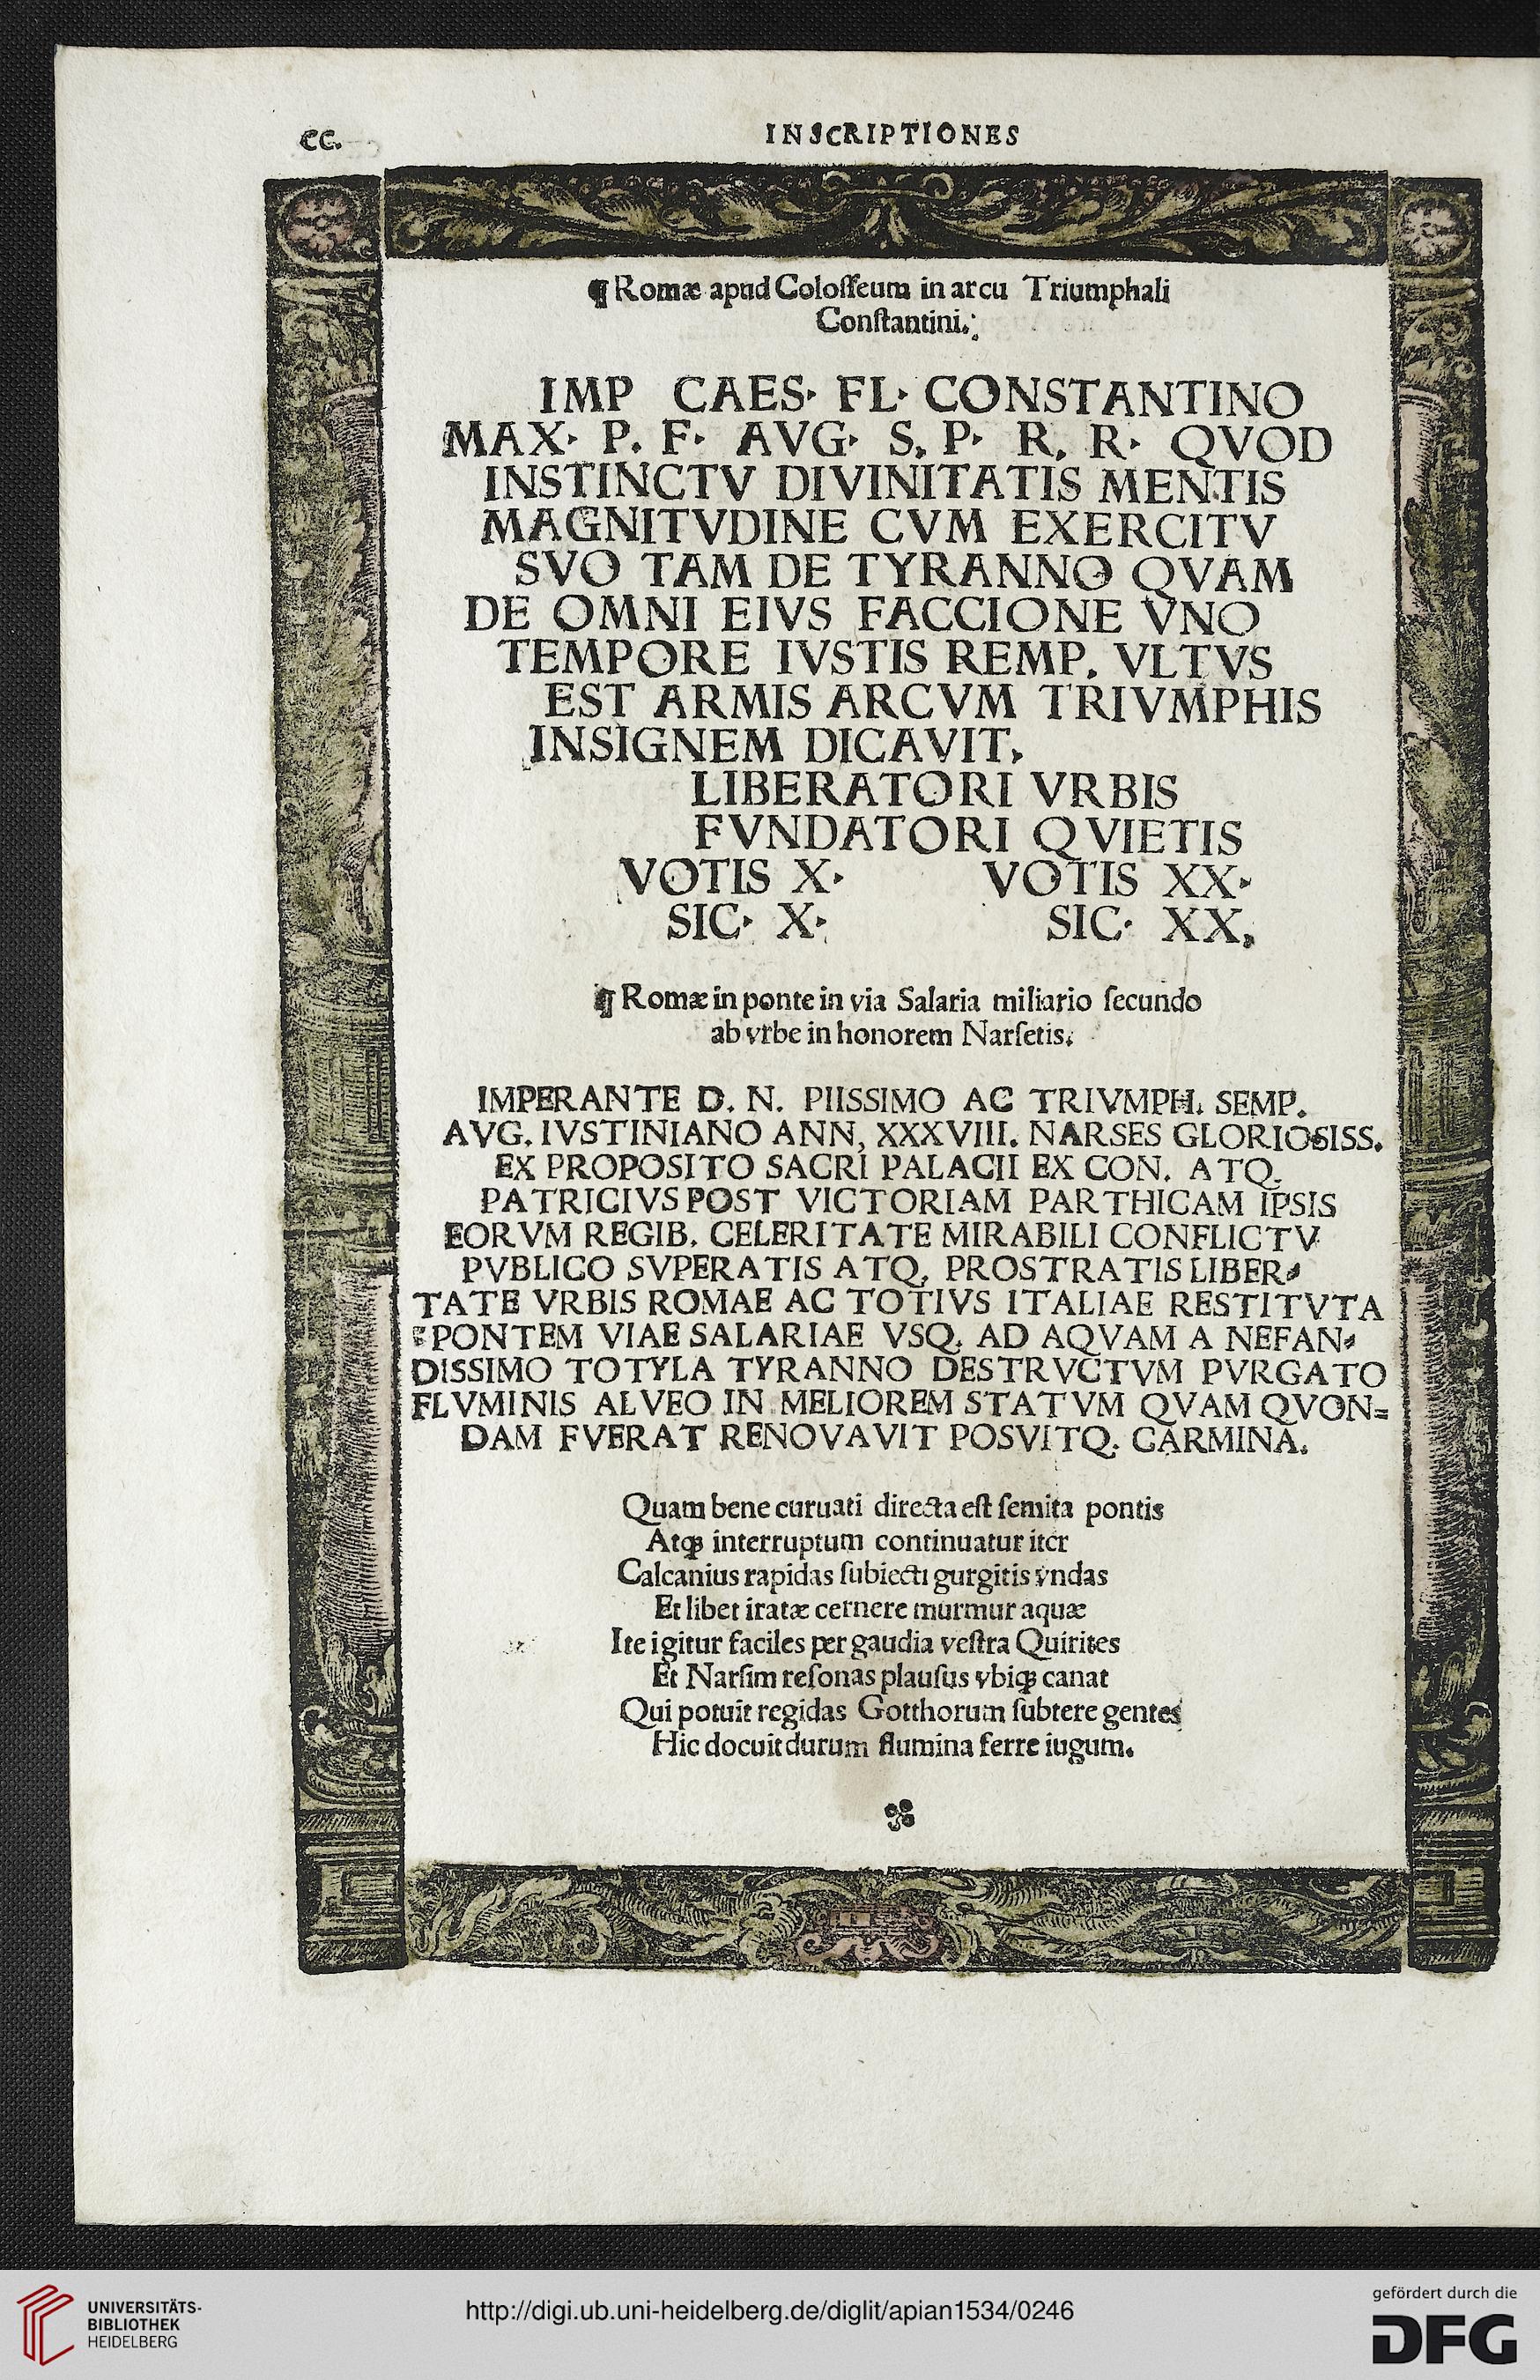 CC.
INSCRIPTIONES
¶ Romæ apud Coloſſeum in arcu Triumphali
Conſtantini.
IMP CAES· FL· CONSTANTINO
MAX· P. F· AVG· S. P· R. R· QVOD
INSTINCTV DIVINITATIS MENTIS
MAGNITVDINE CVM EXERCITV
SVO TAM DE TYRANNO QVAM
DE OMNI EIVS FACCIONE VNO
TEMPORE IVSTIS REMP. VLTVS
EST ARMIS ARCVM TRIVMPHIS
INSIGNEM DICAVIT.
LIBERATORI VRBIS
FVNDATORI QVIETIS
VOTIS X· VOTIS XX·
SIC· X· SIC· XX.
¶ Romæ in ponte in via Salaria miliario ſecundo
ab vrbe in honorem Narſetis.
IMPERANTE D. N. PIISSIMO AC TRIVMPH. SEMP.
AVG. IVSTINIANO ANN, XXXVIII. NARSES GLORIOSISS.
EX PROPOSITO SACRI PALACII EX CON. ATQ.
PATRICIVS POST VICTORIAM PARTHICAM IPSIS
EORVM REGIB. CELERITATE MIRABILI CONFLICTV
PVBLICO SVPERATIS ATQ. PROSTRATIS LIBER⸗
TATE VRBIS ROMAE AC TOTIVS ITALIAE RESTITVTA
PONTEM VIAE SALARIAE VSQ. AD AQVAM A NEFAN⸗
DISSIMO TOTYLA TYRANNO DESTRVCTVM PVRGATO
FLVMINIS ALVEO IN MELIOREM STATVM QVAM QVON⸗
DAM FVERAT RENOVAVIT POSVITQ. CARMINA.
Quam bene curuati directa eſt ſemita pontis
Atqꝫ interruptum continuatur iter
Calcanius rapidas ſubiecti gurgitis vndas
Et libet iratæ cernere murmur aquæ
Ite igitur faciles per gaudia veſtra Quirites
Et Narſim reſonas plauſus vbiqꝫ canat
Qui potuit regidas Gotthorum ſubtere gentes
Hic docuit durum flumina ferre iugum.
UNIVERSITÄTS-
BIBLIOTHEK
HEIDELBERG
http://digi.ub.uni-heidelberg.de/diglit/apian1534/0246
gefördert durch die
DFG